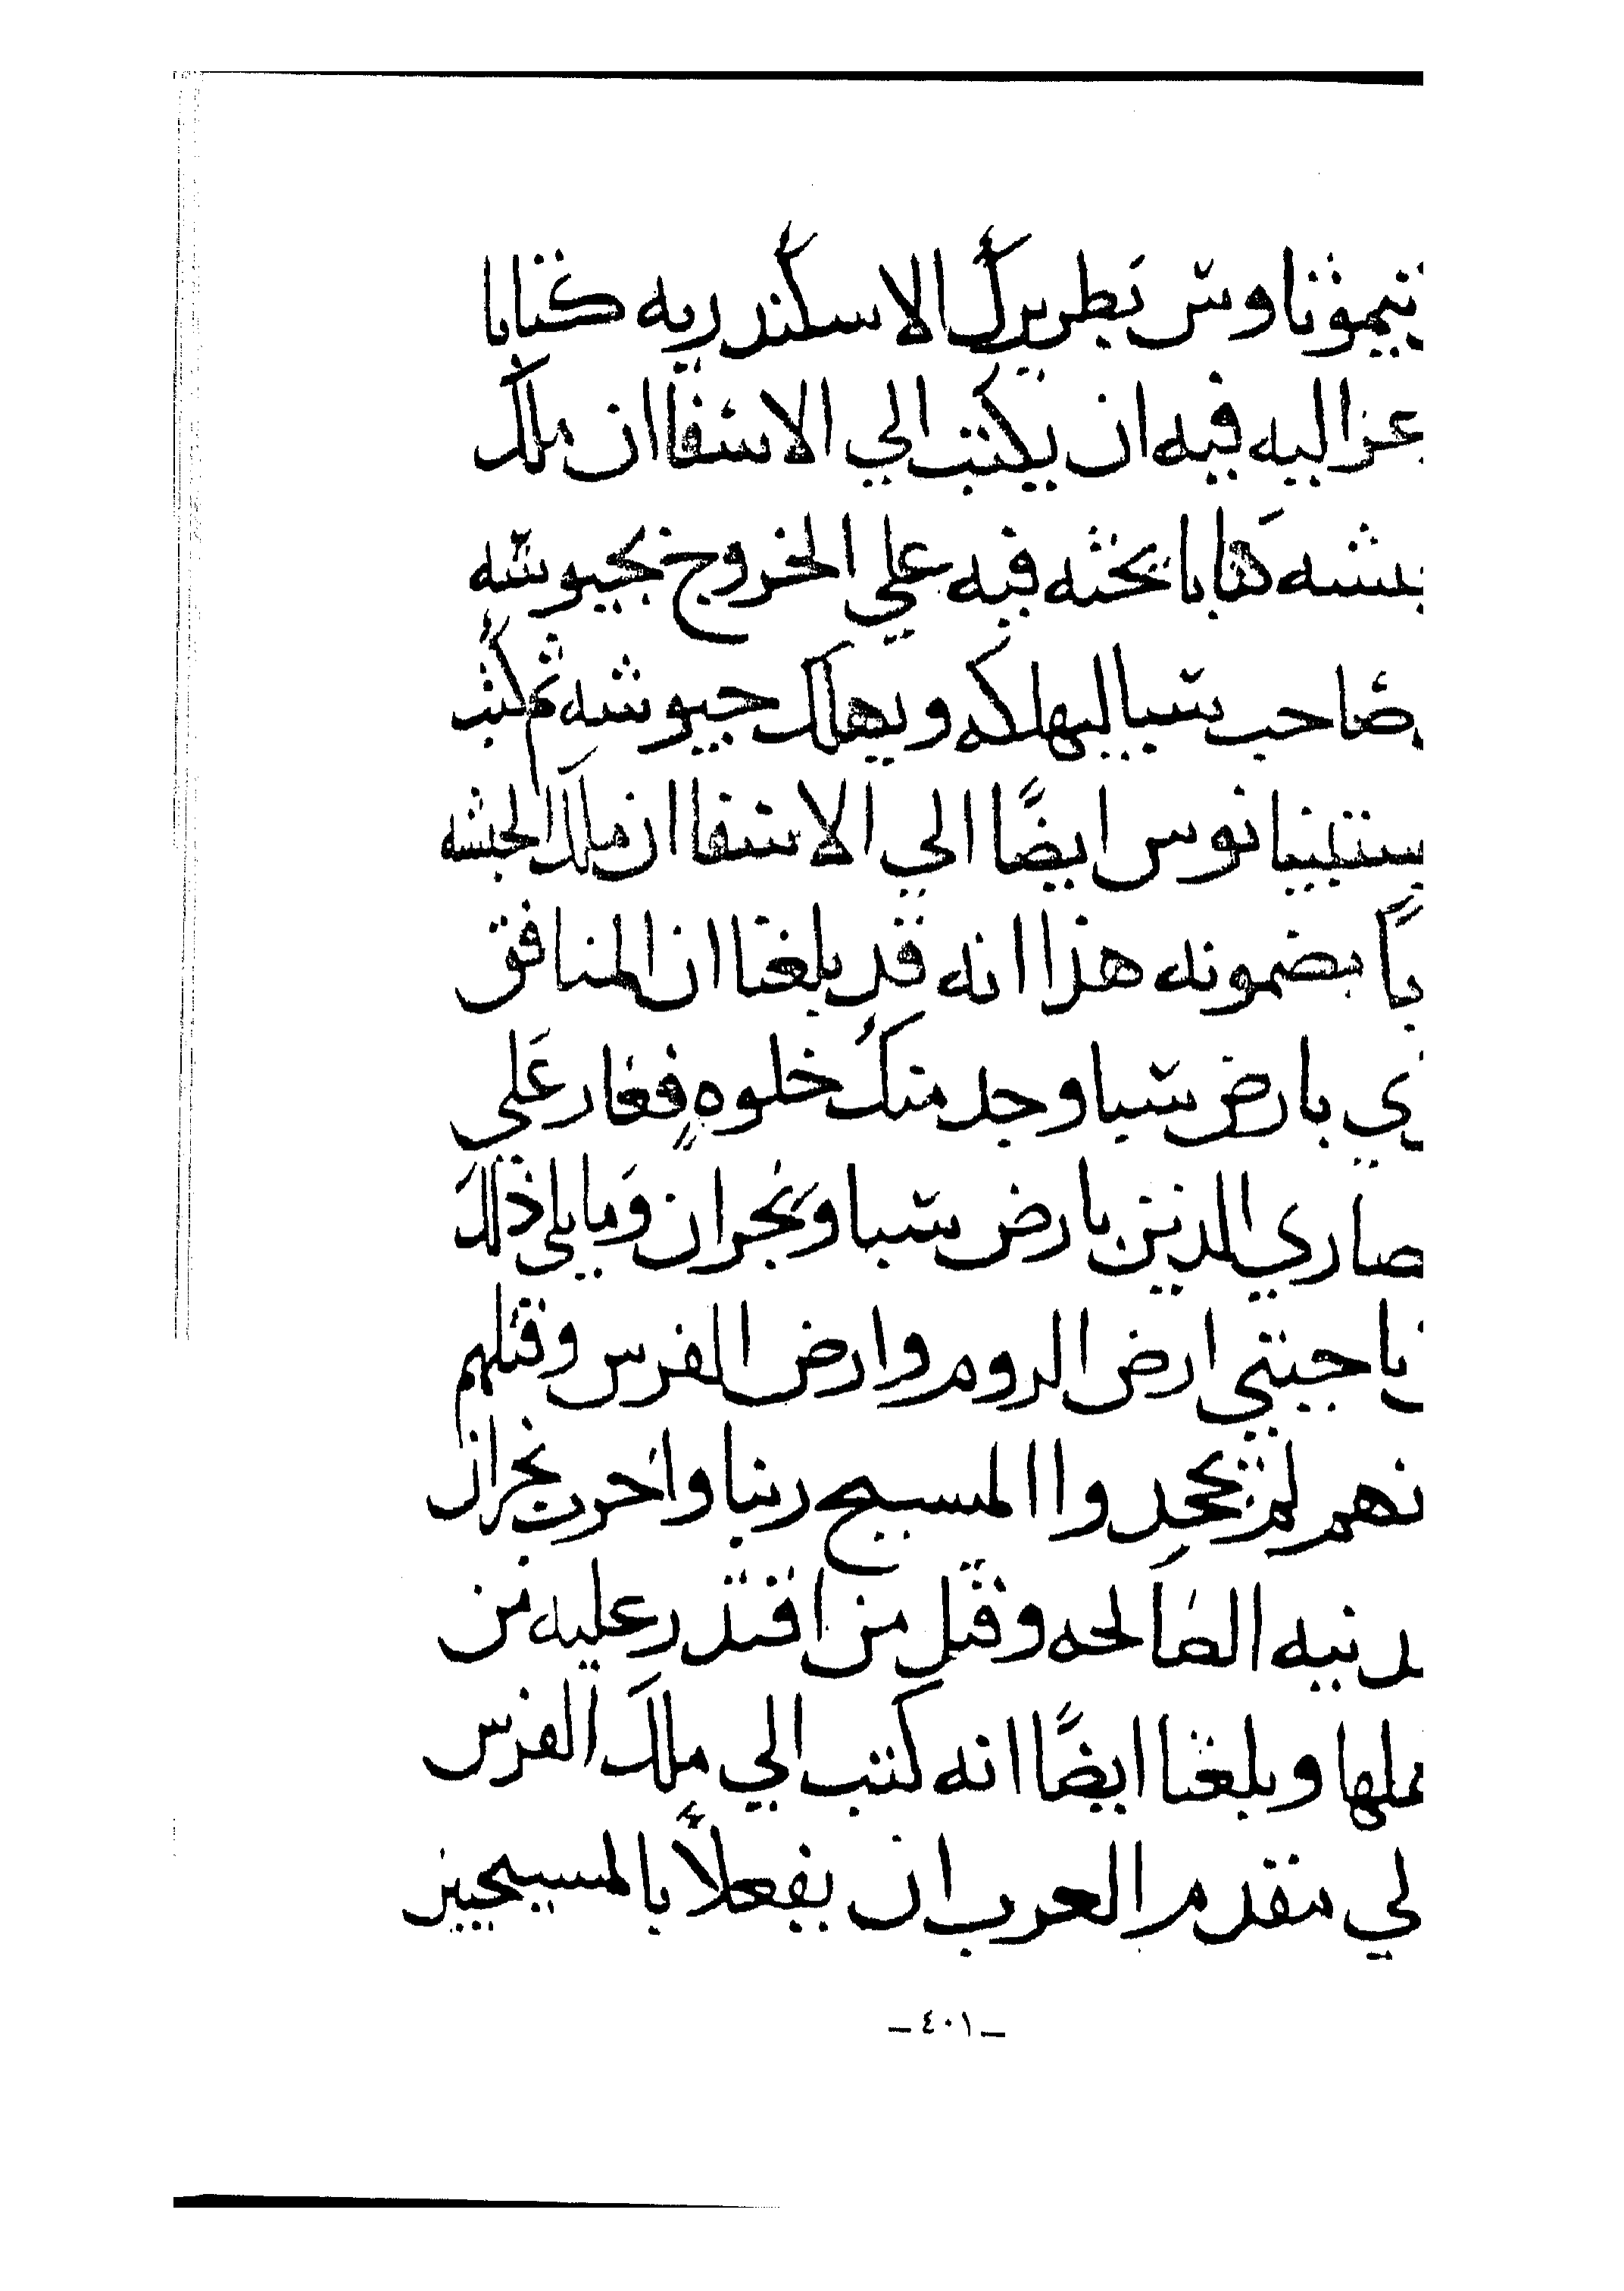 تيموثاوس بطريرك الاسكندريه كتابا
عز اليه فيه ان يكتب الي الاشفاان ملك
بشه كتابا يحثه فيه علي الخروج بجيوشه
صاحب سبا ليهلكه ويهلك جيوشه ثم كتب
ستينيانوس ايضًا الي الاشفاان ملك الحبشه
بًا بضمونه هذا انه قد بلغنا ان المنافق
ي بارض سبا وجد منك خلوه فغار علي
صاري الدين بارض سبا ونجران وما يلي ذلك
يا جيتي ارض الروم وارض الفرس وقتلهم
نهم لم يجحدوا المسيح ربنا واخرب نجران
دنيه الصالحه وقتل من اقتدر عليه من
هلها وبلغنا ايضًا انه كتب الي ملك الفرس
لي متقدم العرب ان يفعلاً بالمسيحيين
ـ ٤٠١ ـ